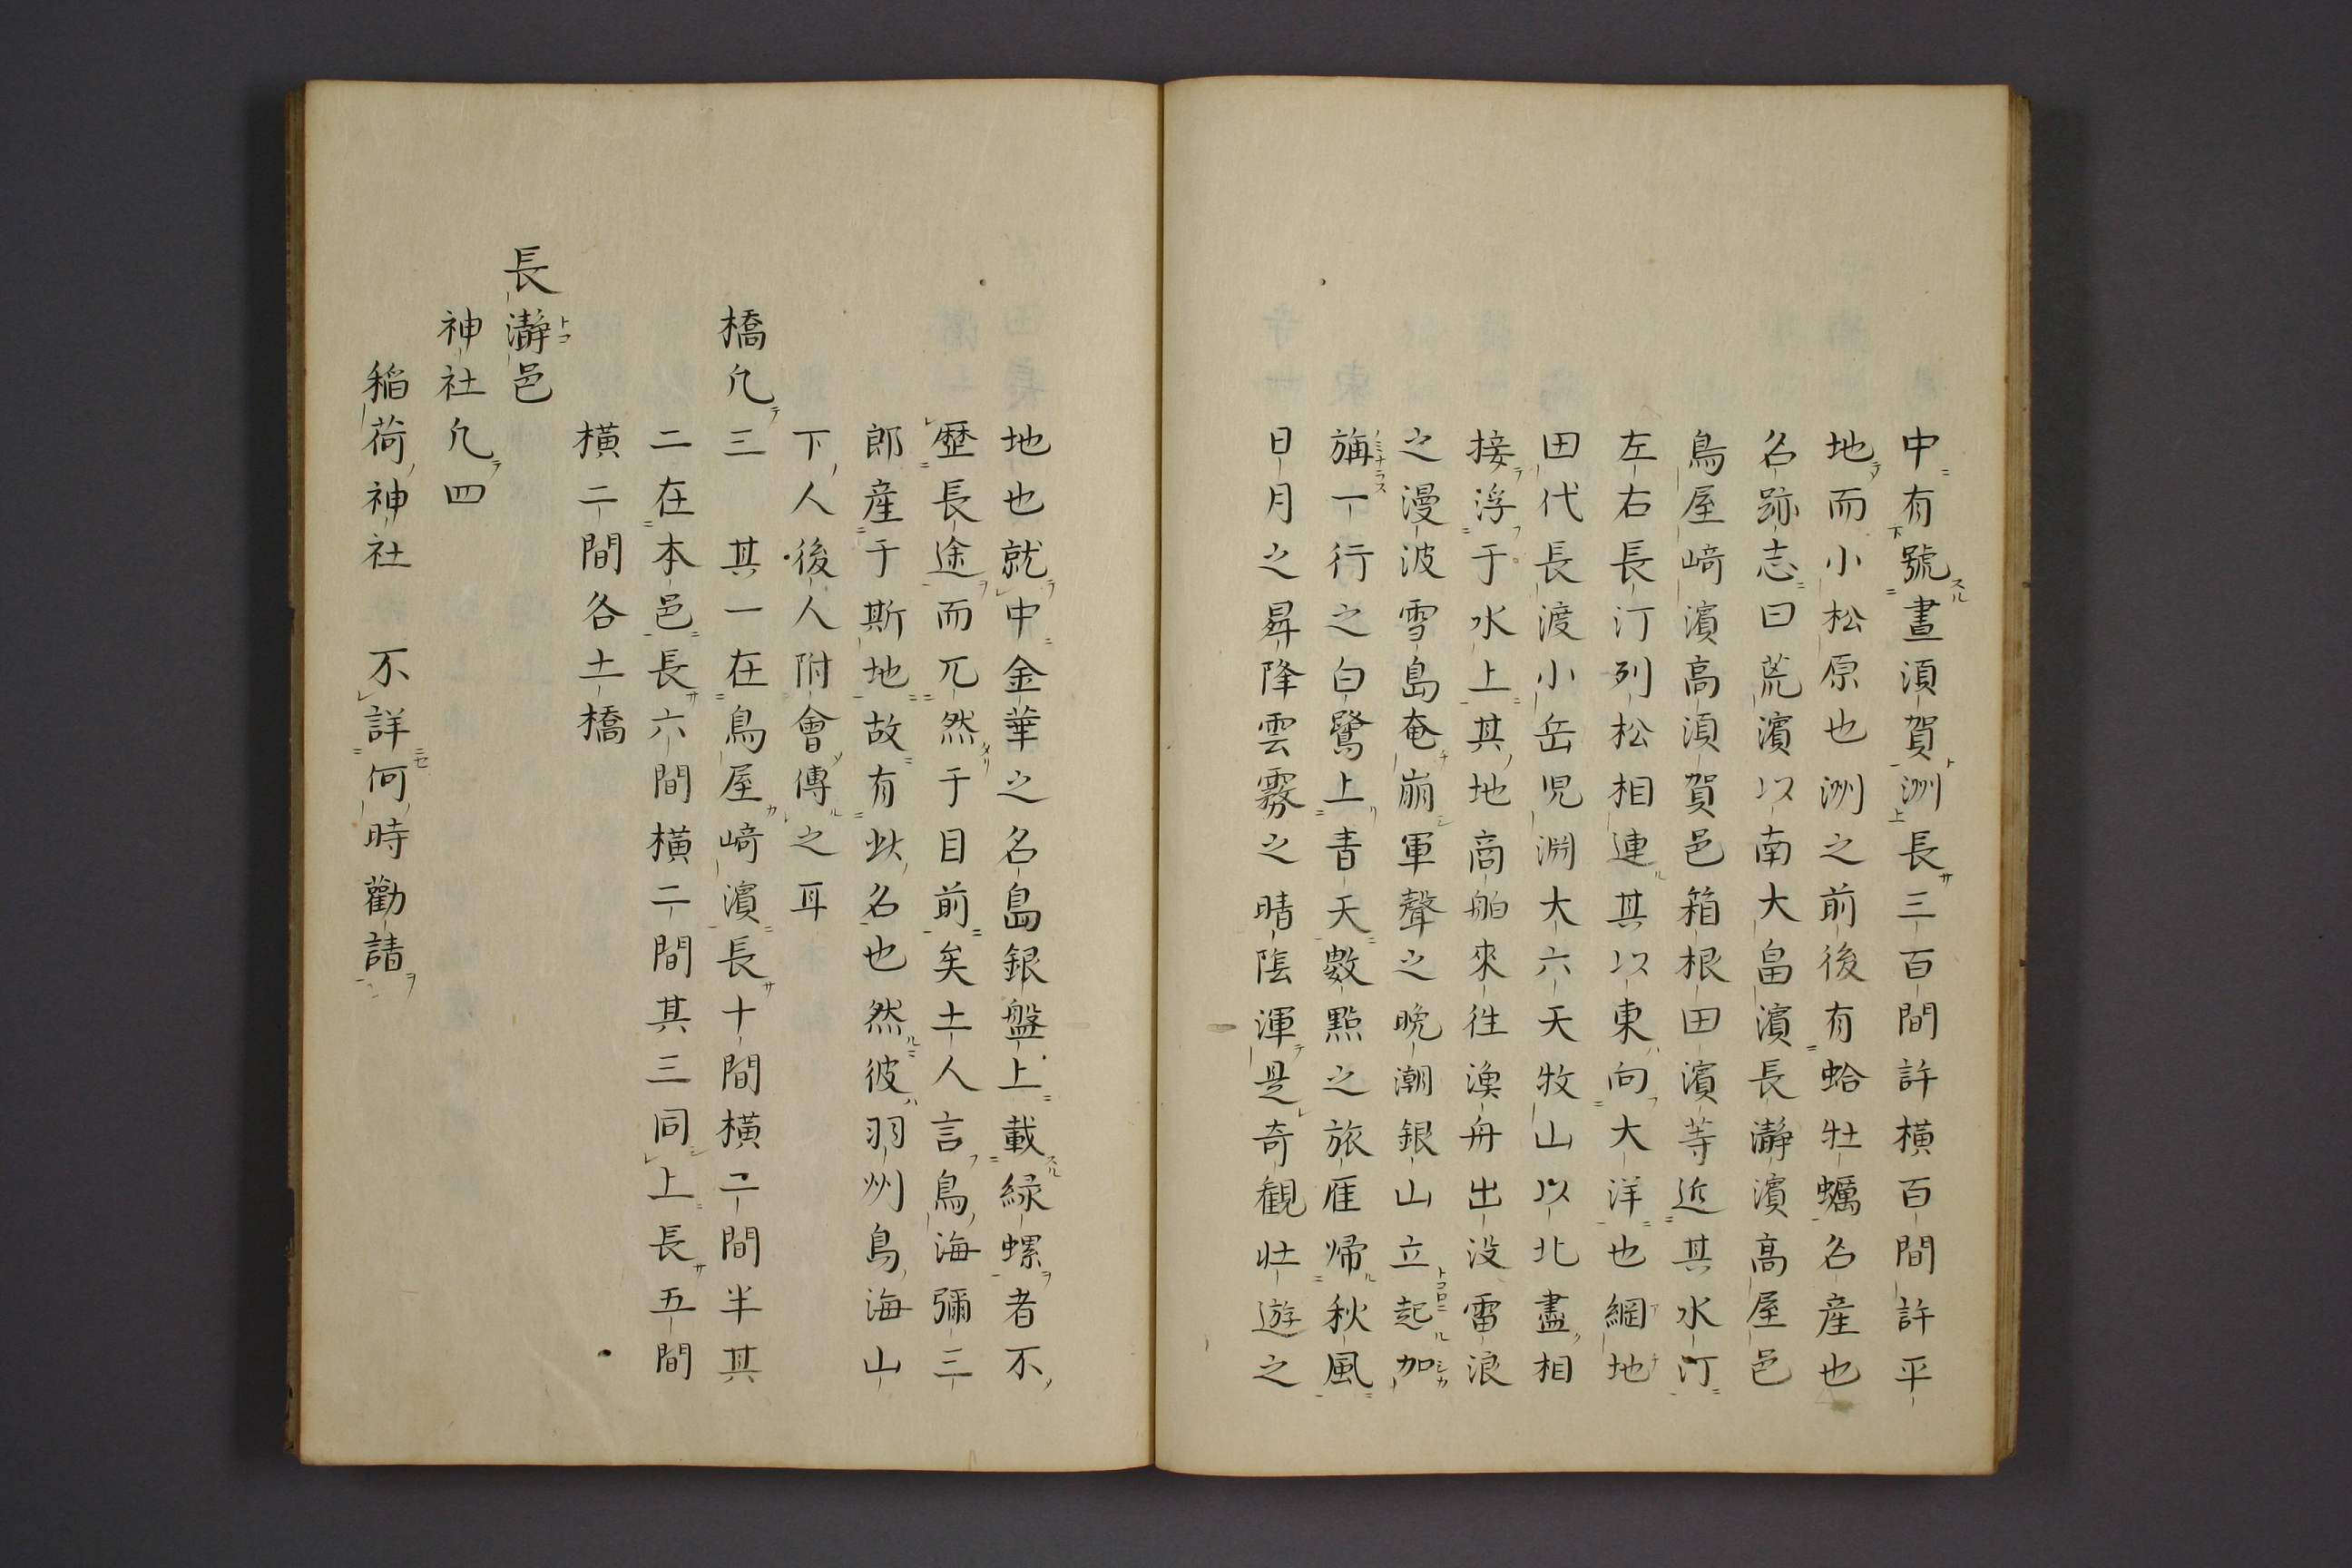 中有號晝湏賀洲長三百間許横百間許平
地而小松原也洲之前後有蛤牡蠣名産也
名跡志曰荒濱以南大畠濱長瀞濱髙屋邑
鳥屋﨑濱髙湏賀邑箱根田濱等近其水汀
左右長汀列松相連其以東向大洋也網地
田代長渡小岳児淵大六天牧山以北盡相
接浮于水上其地商舶來徃漁舟出没雷浪
之漫波雪島奄崩軍聲之晩潮銀山立起加
旃一行之白鷺上青天數點之旅雁帰秋風
日月之昇降雲霧之晴陰渾是奇観壮遊之
地也就中金華之名島銀盤上載緑螺者不
歴長途而兀然于目前矣土人言鳥海彌三
郎産于斯地故有此名也然彼羽州鳥海山
下人後人附會傳之耳
橋凢三 其一在鳥屋﨑濱長十間横二間半其
二在本邑長六間横二間其三同上長五間
横二間各土橋
長瀞邑
神社凢四
稲荷神社 不詳何時勸請